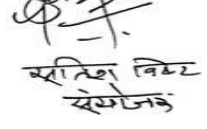 सतिश बिष्ट
संयोजक